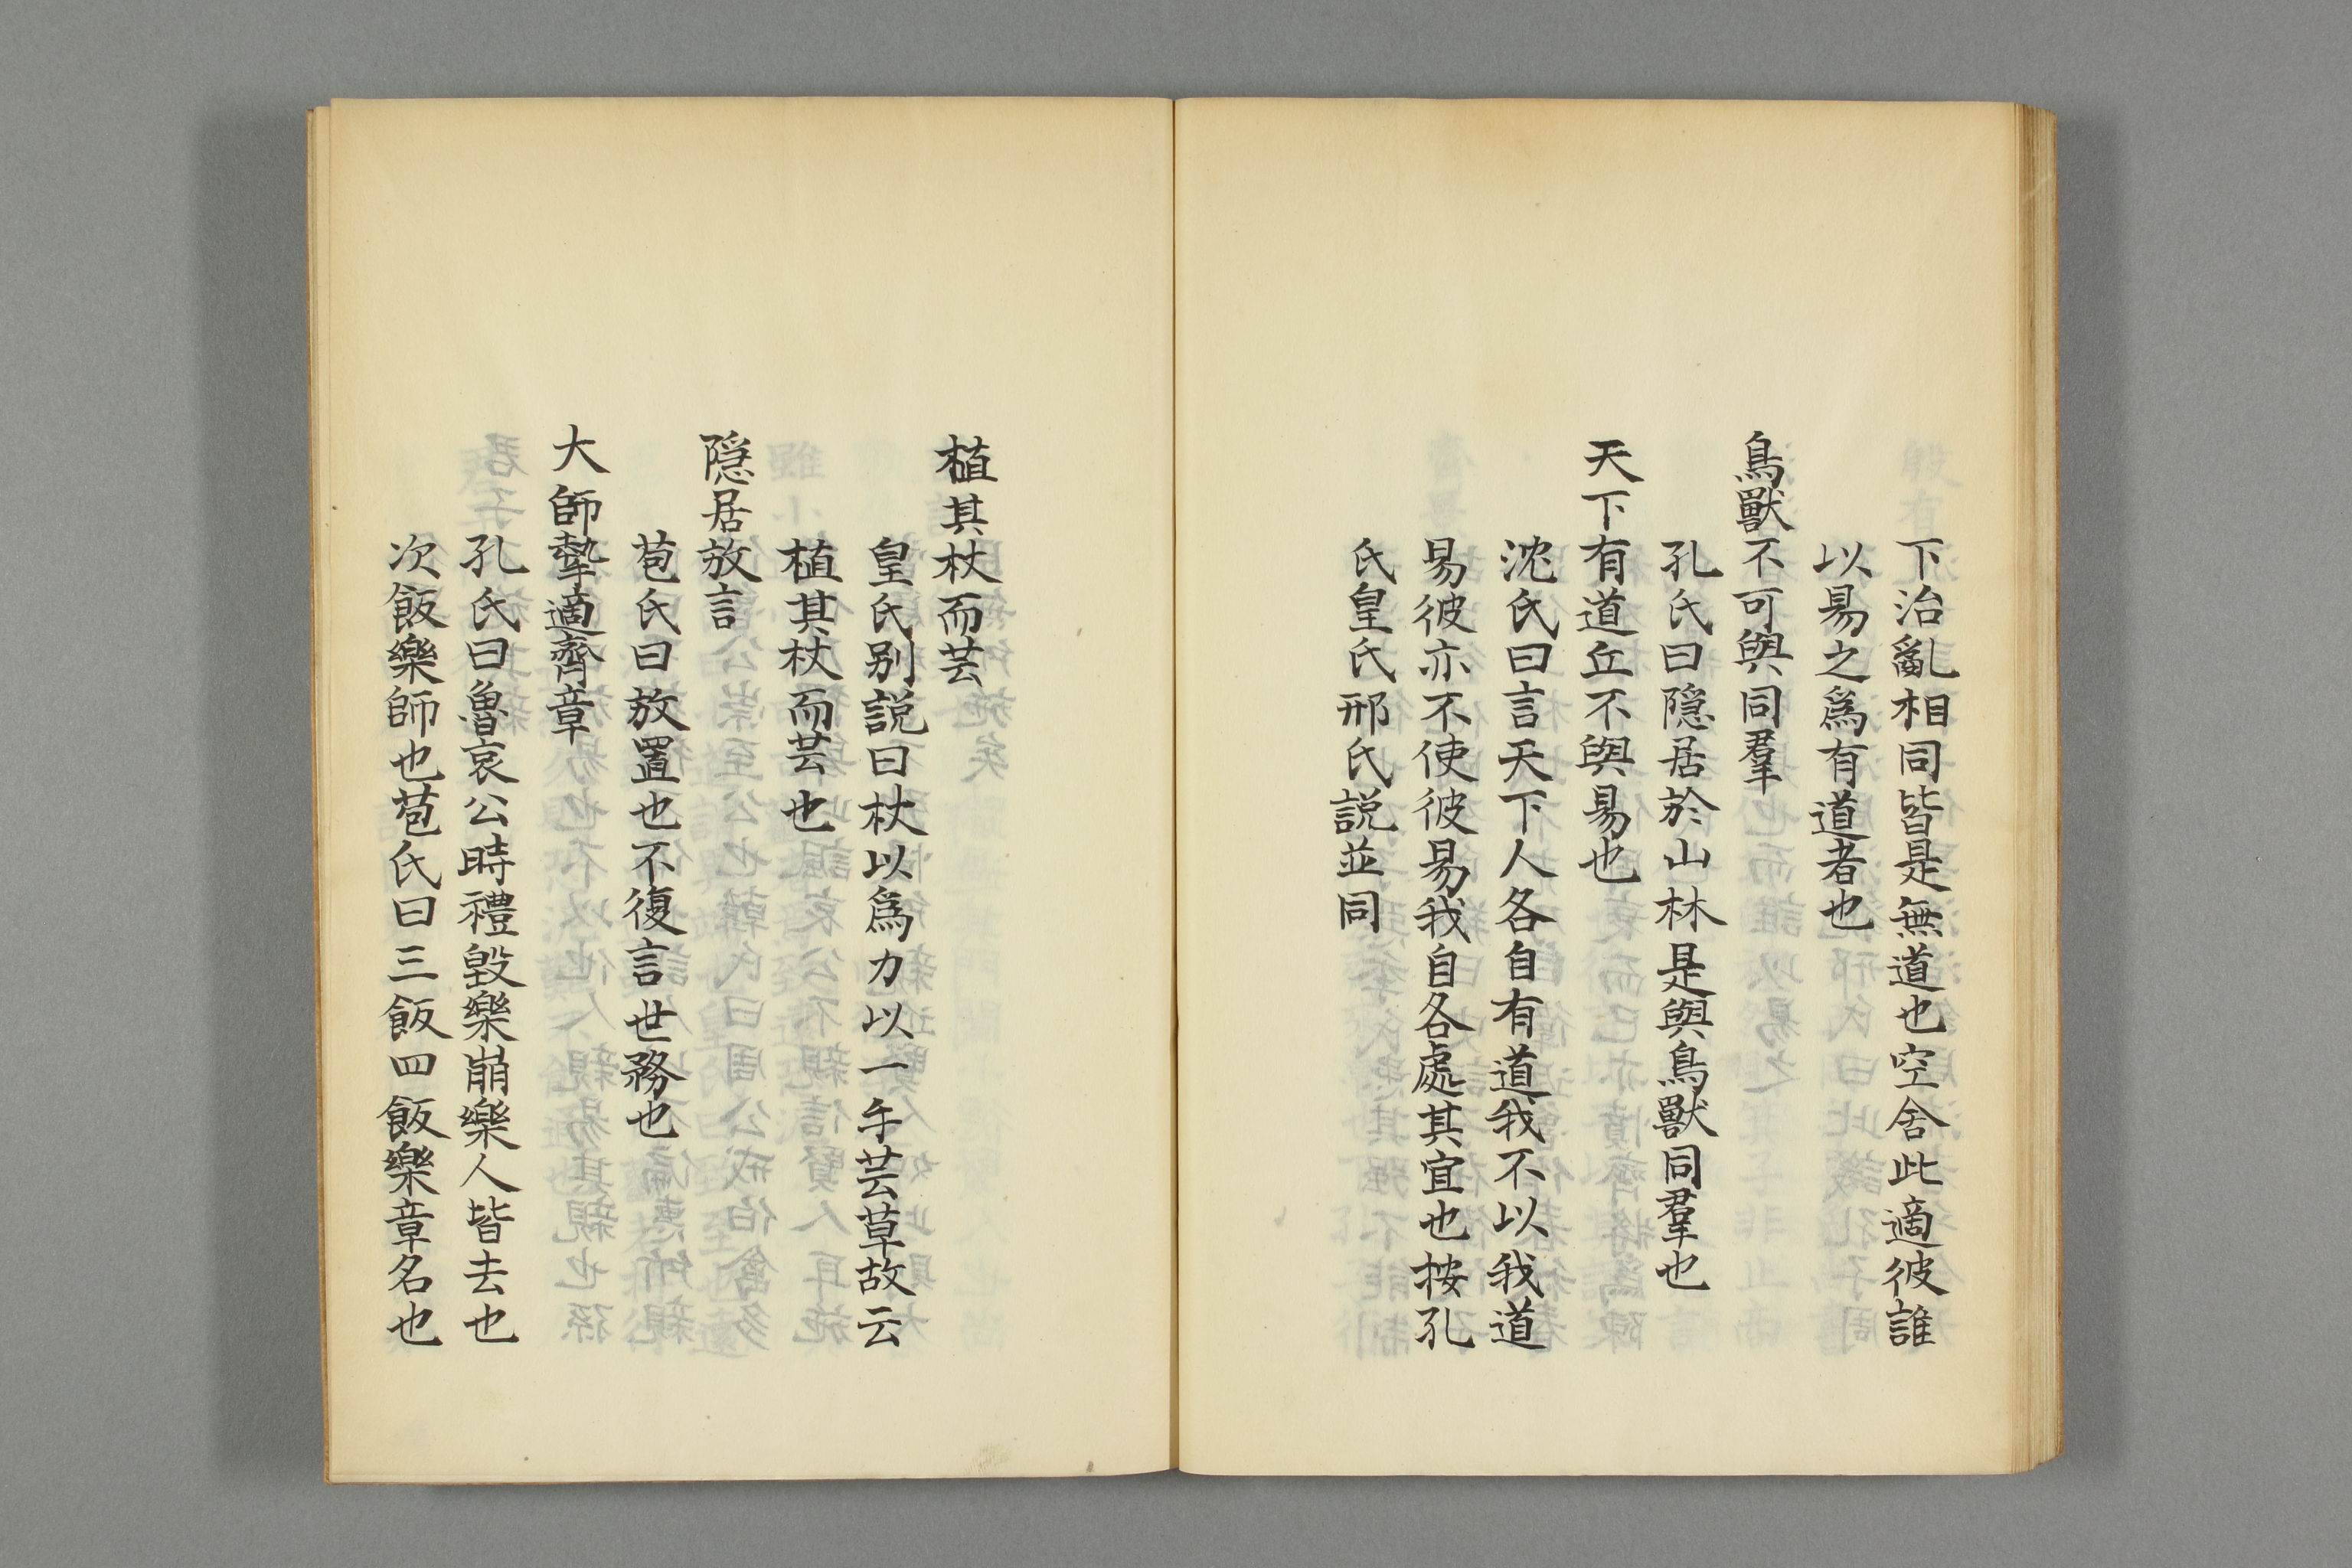 下治亂相同皆是無道也空舍此適彼誰
以易之爲有道者也
鳥獸不可與同羣
孔氏曰隠居於山林是與鳥獸同羣也
天下有道丘不與易也
沈氏曰言天下人各自有道我不以我道
易彼亦不使彼易我自各處其宜也按孔
氏皇氏邢氏説並同
植其杖而芸
皇氏别説曰杖以爲力以一手芸草故云
植其杖而芸也
隠居放言
苞氏曰放置也不復言世務也
大師摯適齊章
孔氏曰魯哀公時禮毀樂崩樂人皆去也
次飯樂師也苞氏曰三飯四飯樂章名也